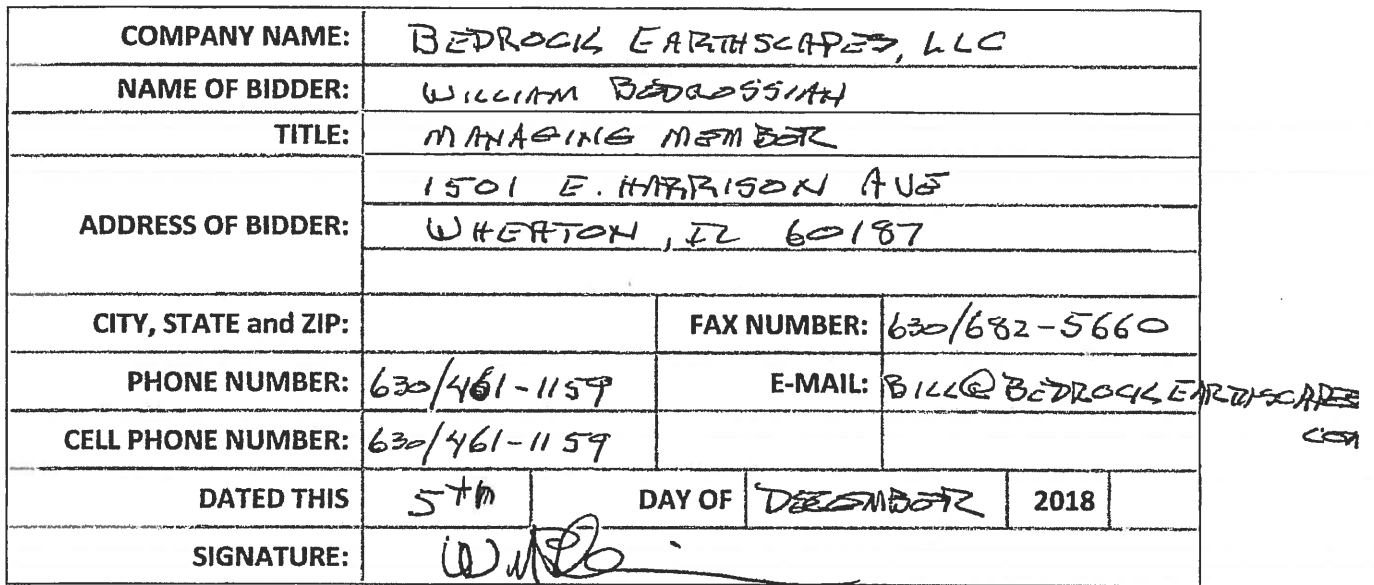 COMPANY NAME: BEDROCK EARTHSCAPES, LLC
NAME OF BIDDER: WILLIAM BEDROSSIAN
TITLE: MANAGING MEMBER
ADDRESS OF BIDDER: 1501 E. HARRISON AVE
WHEATON, IL 60187
CITY, STATE and ZIP: FAX NUMBER: 630/682-5660
PHONE NUMBER: 630/461-1159 E-MAIL: BILL@BEDROCKEARTHSCAPES
COM
CELL PHONE NUMBER: 630/461-1159
DATED THIS 5TH DAY OF DECEMBER 2018
SIGNATURE: